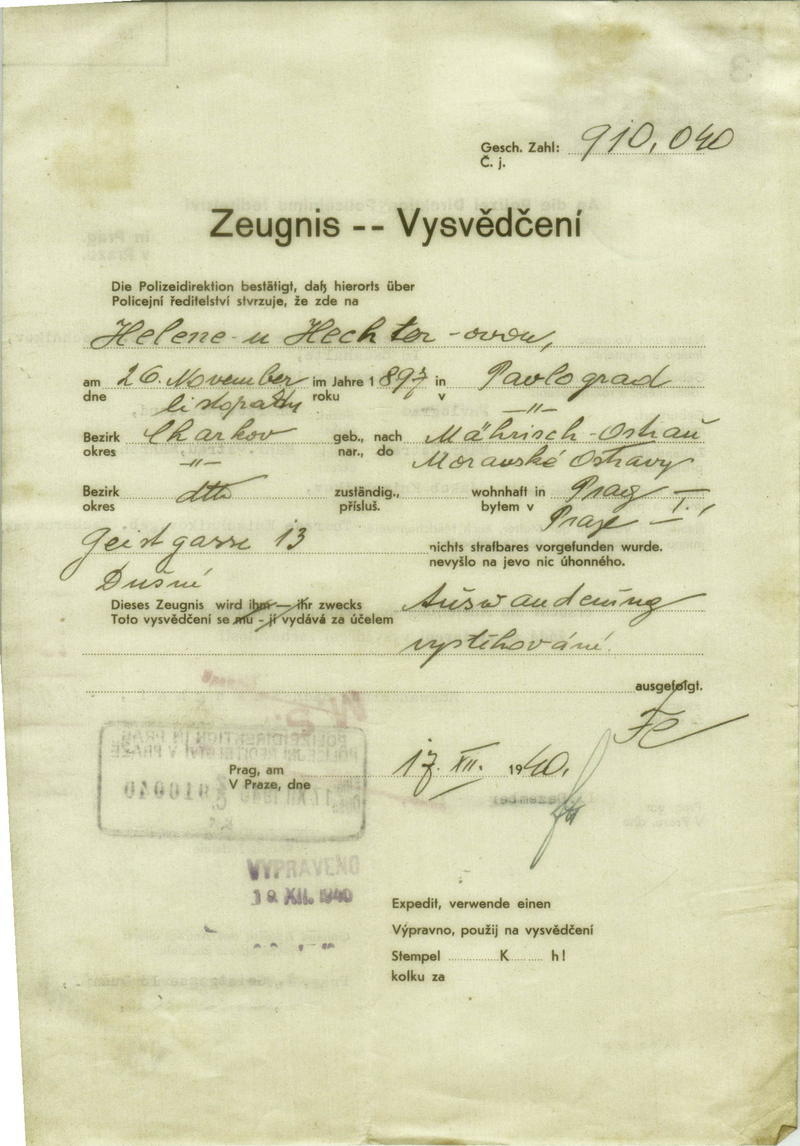 Gesch. Zahl: 910.040
Č. j.
Zeugnis -- Vysvědčení
Die Polizeidirektion bestätigt, daß hierorts über
Policejní ředitelství stvrzuje, že zde na
Helene-u Hechter-ovou,
am 26. November im Jahre 1897 in Pavlograd
dne listopadu roku v -"-
Bezirk Charkov geb., nach Mährisch-Ostrau
okres -"- nar., do Moravské Ostravy
Bezirk dtto zuständig., wohnhaft in Prag I.,
okres přísluš. bytem v Praze
Geistgasse 13 nichts strafbares vorgefunden wurde.
nevyšlo na jevo nic úhonného.
Dušné
Dieses Zeugnis wird ihm — ihr zwecks Auswanderung
Toto vysvědčení se mu - jí vydává za účelem
vystěhování.
ausgefolgt.
Prag, am 17. XII. 1940.
V Praze, dne
POLIZEIDIREKTION IN PRAG
POLICEJNÍ ŘEDITELSTVÍ V PRAZE
910040
VYPRAVENO
19. XII. 1940
Expedit, verwende einen
Výpravno, použij na vysvědčení
Stempel K h!
kolku za